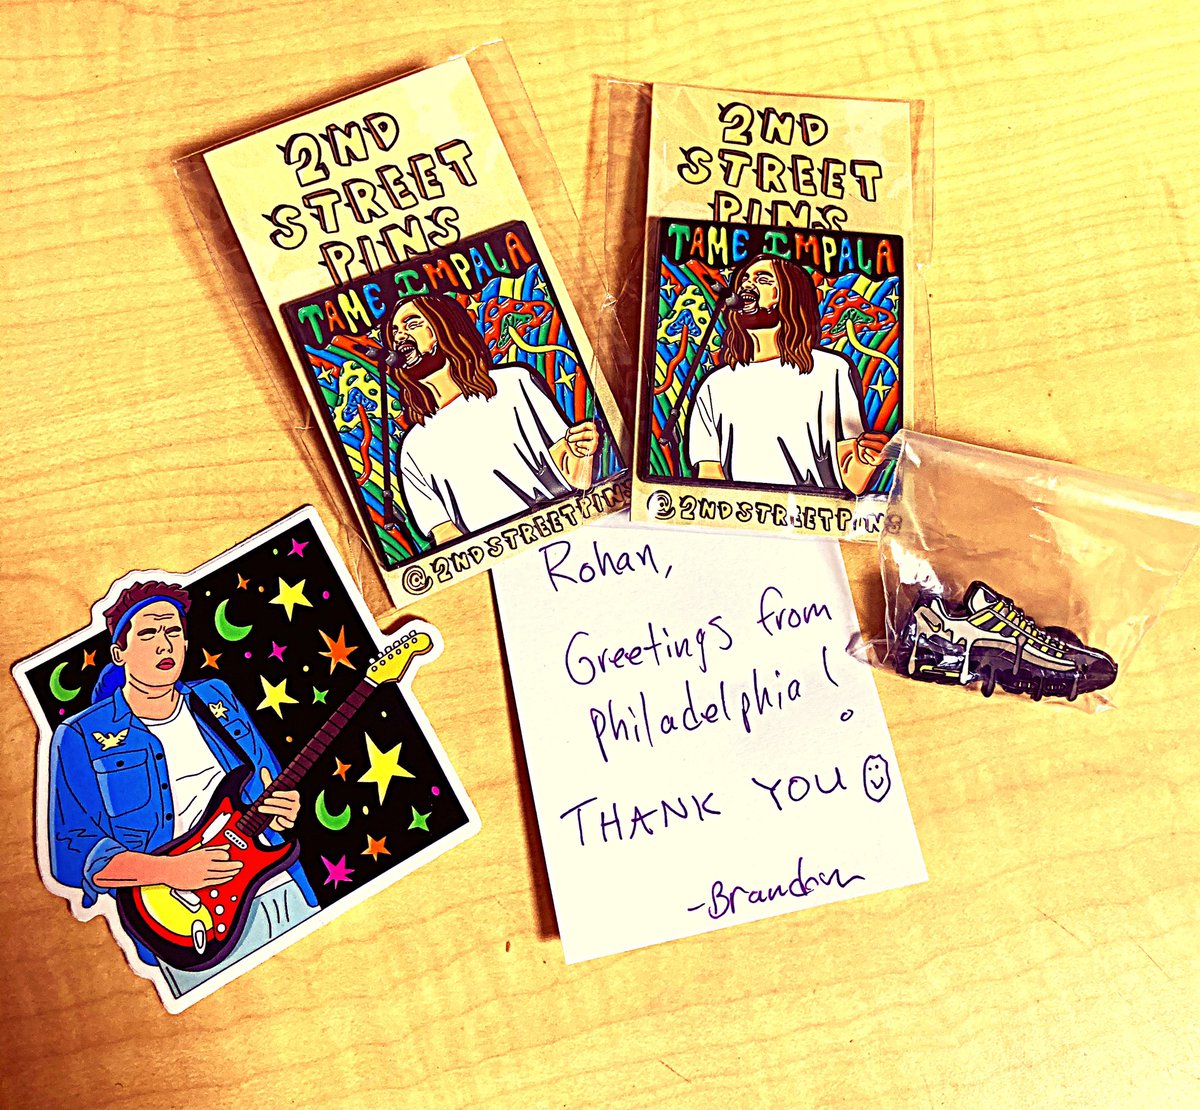 2ND
STREET
PINS
TAME IMPALA
@2NDSTREETPINS
2ND
STREET
PINS
TAME IMPALA
@2NDSTREETPINS
Rohan,
Greetings from
Philadelphia!
THANK YOU
-Brandon